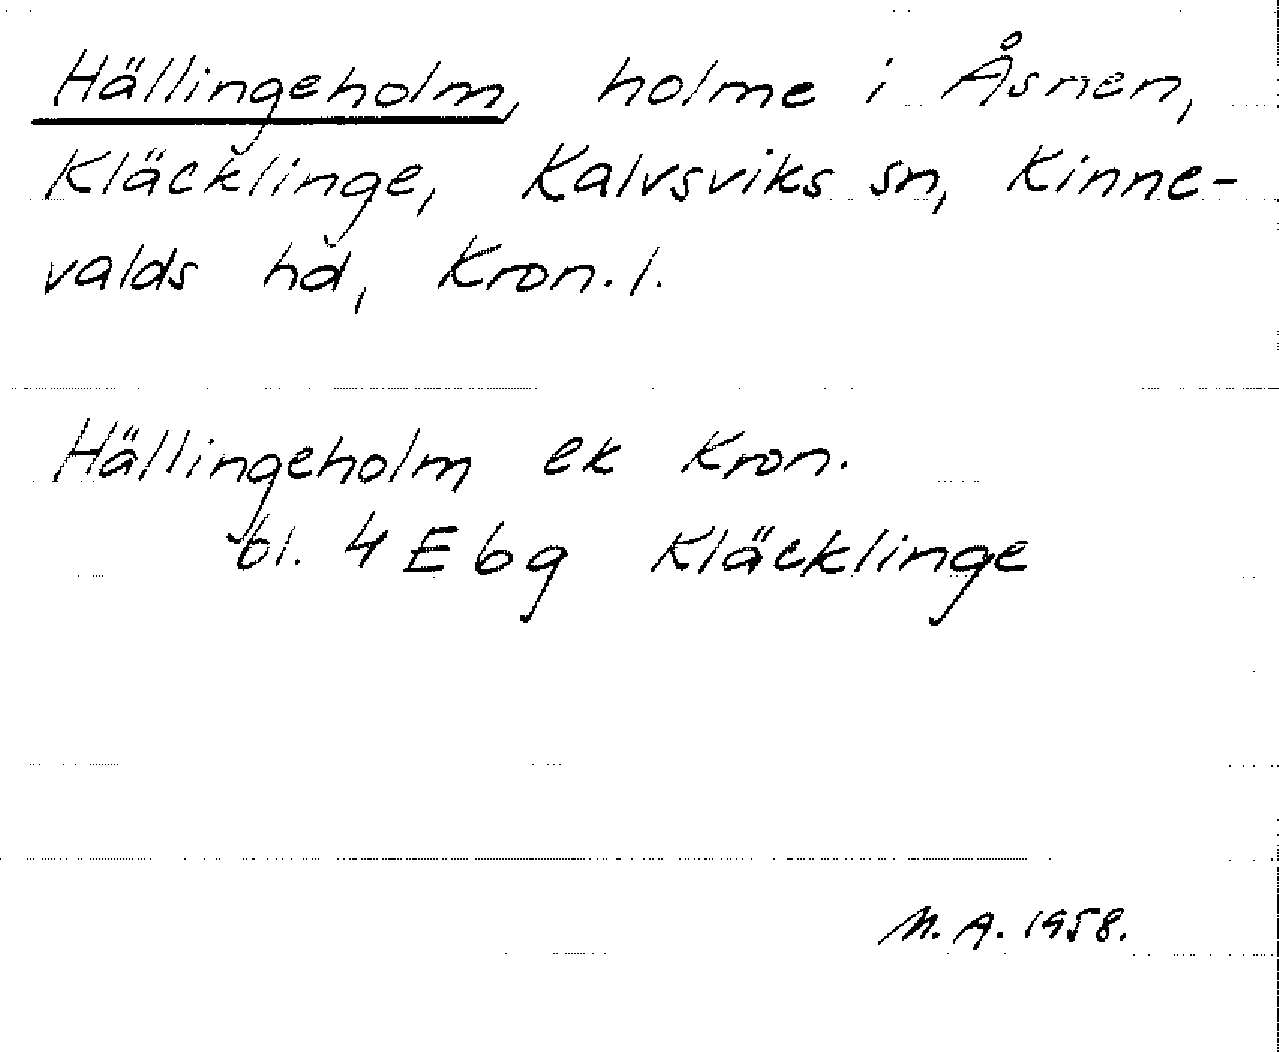 Hällingeholm, holme i Åsnen,
Kläcklinge, Kalvsviks sn, Kinne-
valds hd, Kron. l.
Hällingeholm ek Kron.
bl. 4 E bg Kläcklinge
M. A. 1958.